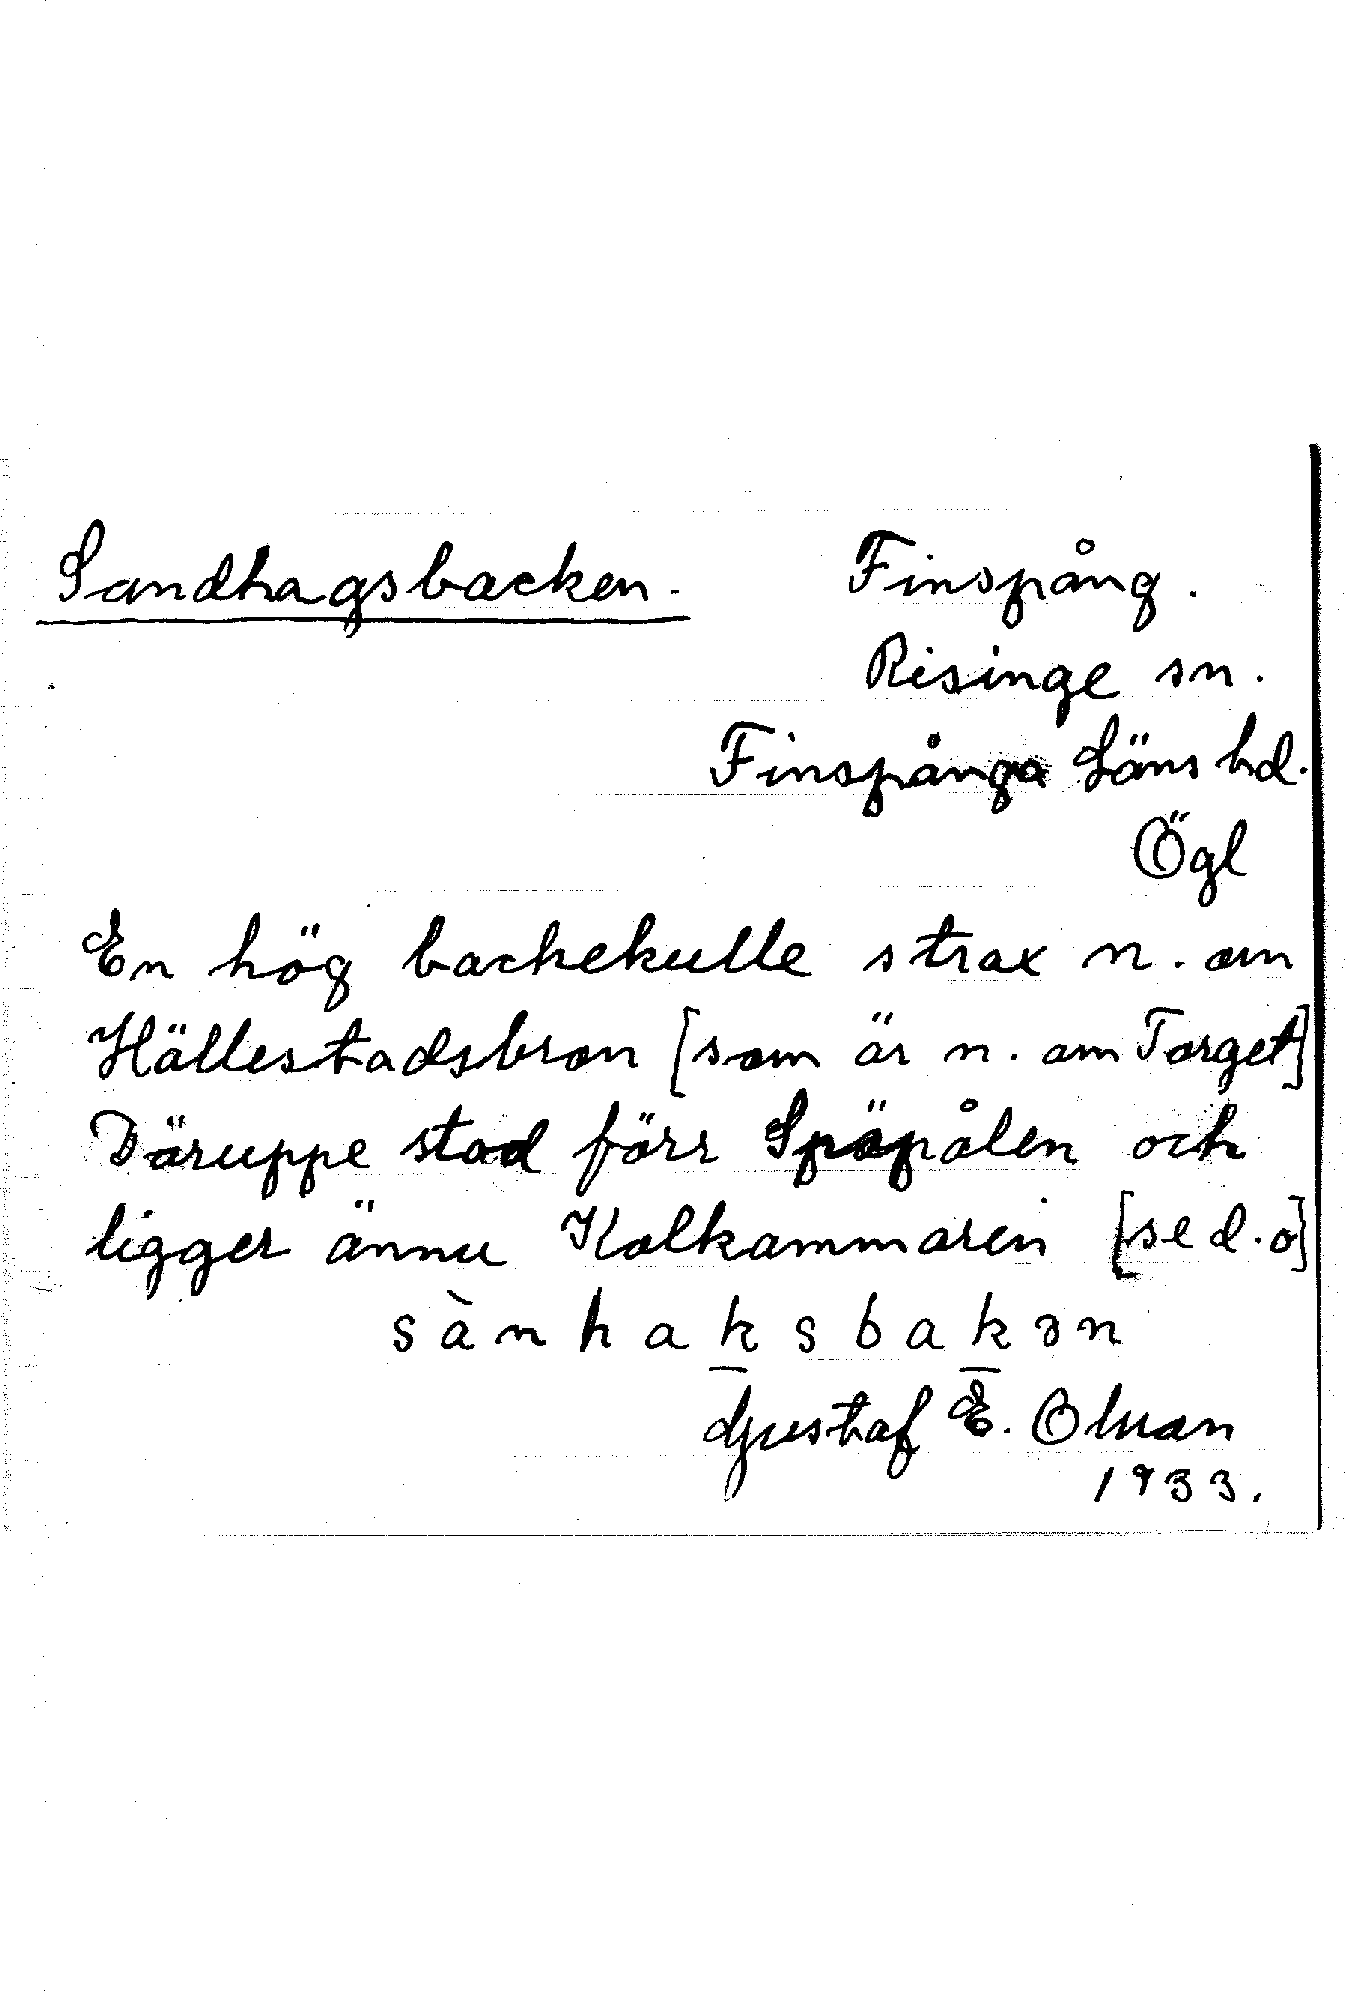 Sandhagsbacken. Finspång.
Risinge sn.
Finspånga Läns hd.
Ögl
En hög backekulle strax n. om
Hällestadsbron [som är n. om Torget]
Däruppe stod förr Spöpålen och
ligger ännu Kolkammaren [se d. o]
sànhaksbakən
Gustaf E. Olson
1933.